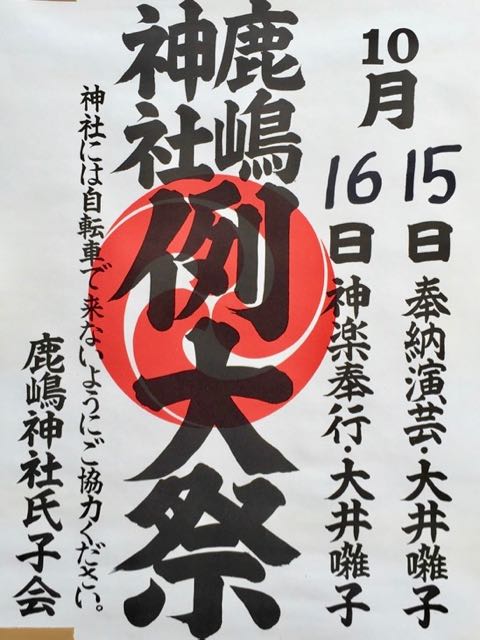 10月
15日 奉納演芸・大井囃子
16日 神楽奉行・大井囃子
鹿嶋神社
例大祭
神社には自転車で来ないようにご協力ください。
鹿嶋神社氏子会